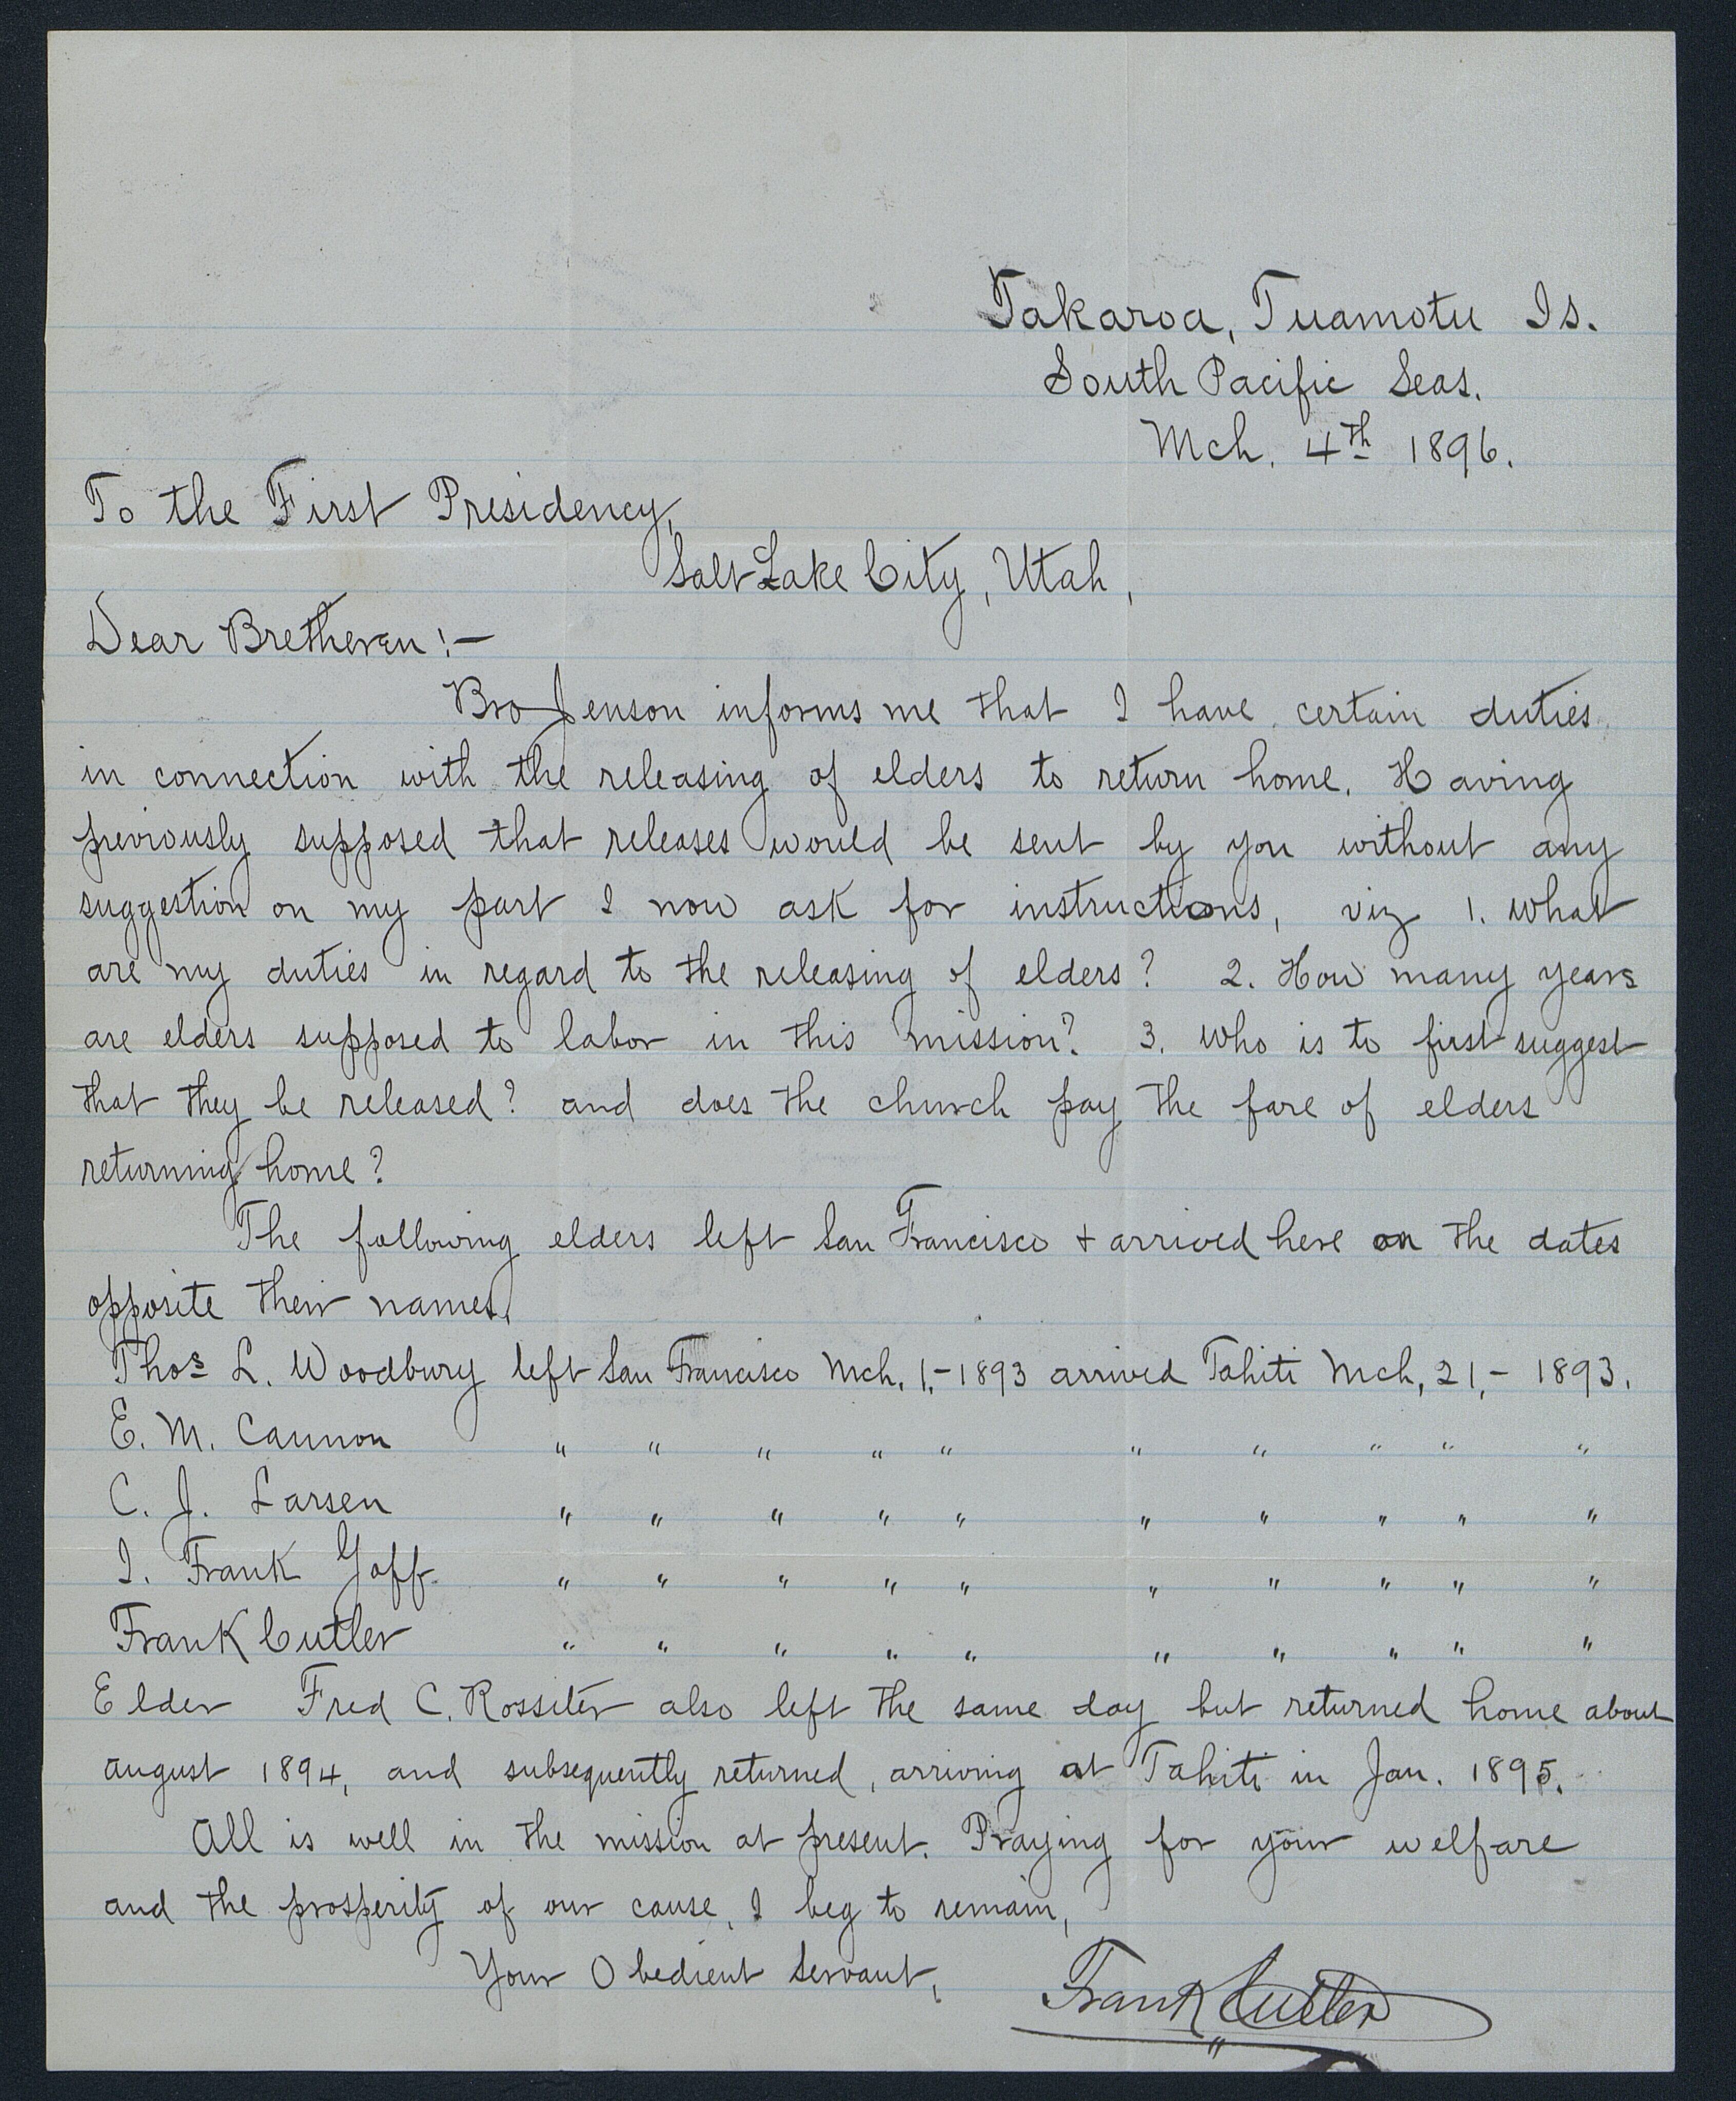 Takaroa, Tuamotu Is.
South Pacific Seas.
Mch. 4th 1896.
To the First Presidency,
Salt Lake City, Utah,
Dear Bretheren:—
Bro Jenson informs me that I have certain duties
in connection with the releasing of elders to return home. Having
previously supposed that releases would be sent by you without any
suggestion on my part I now ask for instructions, viz 1. What
are my duties in regard to the releasing of elders? 2. How many years
are elders supposed to labor in this mission? 3. Who is to first suggest
that they be released? and does the church pay the fare of elders
returning home?
The following elders left San Francisco & arrived here on the dates
opposite their names.
Thos L. Woodbury left San Francisco Mch. 1,-1893 arrived Tahiti Mch, 21,- 1893.
E. M. Cannon " " " " " " " " " "
C. J. Larsen " " " " " " " " " "
I. Frank Goff. " " " " " " " " " "
Frank Cutler " " " " " " " " " "
Elder Fred C. Rossiter also left the same day but returned home about
august 1894, and subsequently returned, arriving at Tahiti in Jan. 1895.
All is well in the mission at present. Praying for your welfare
and the prosperity of our cause, I beg to remain,
Your Obedient Servant, Frank Cutler